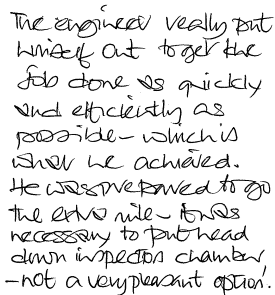 The engineer really put
himself out to get the
job done as quickly
and efficiently as
possible – which is
what he achieved.
He was prepared to go
the extra mile – it was
necessary to put head
down inspection chamber
– not a very pleasant option!